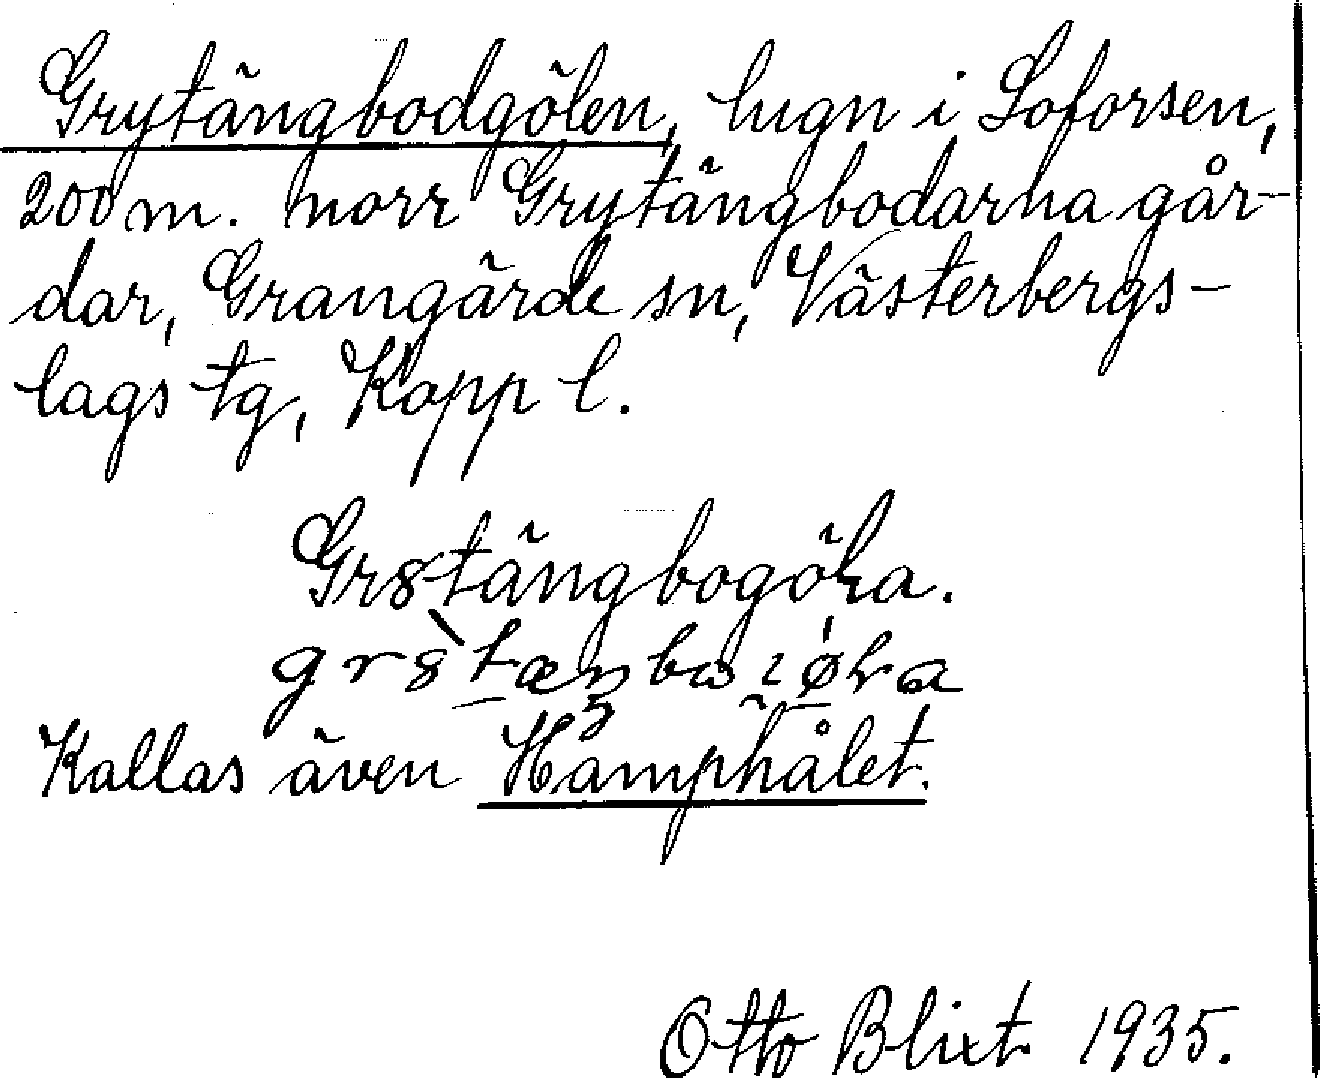 Grytängbodgölen, lugn i Loforsen,
200 m. norr Grytängbodarna går-
dar, Grangärde sn, Västerbergs-
lags tg, Kopp l.
Gr8tängbogöka.
Kallas även Hämphålet.
Otto Blixt 1935.